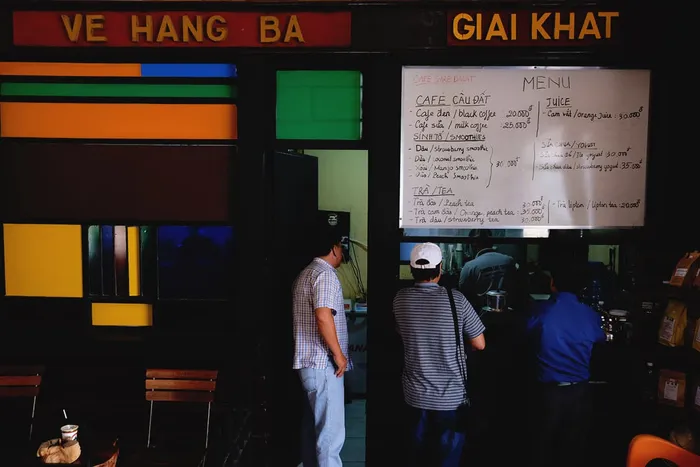 VE HANG BA
GIAI KHAT
MENU
CAFE CẦU ĐẤT
- Cafe đen / black coffee 20.000đ
- Cafe sữa / milk coffee 25.000
SINH TỐ / SMOOTHIES
- Dâu / strawberry smoothie
- Dừa / coconut smoothie
- Xoài / Mango smoothie
- Đào / Peach Smoothie
30.000đ
TRÀ / TEA
- Trà Đào / Peach tea 30.000
- Trà cam đào / Orange, peach tea 35.000
- Trà dâu / strawberry tea 30.000
JUICE
- Cam vắt / orange Juice : 30.000đ
SỮA CHUA / YOGURT
30.000đ
35.000
- Trà Lipton / Lipton tea 20.000đ